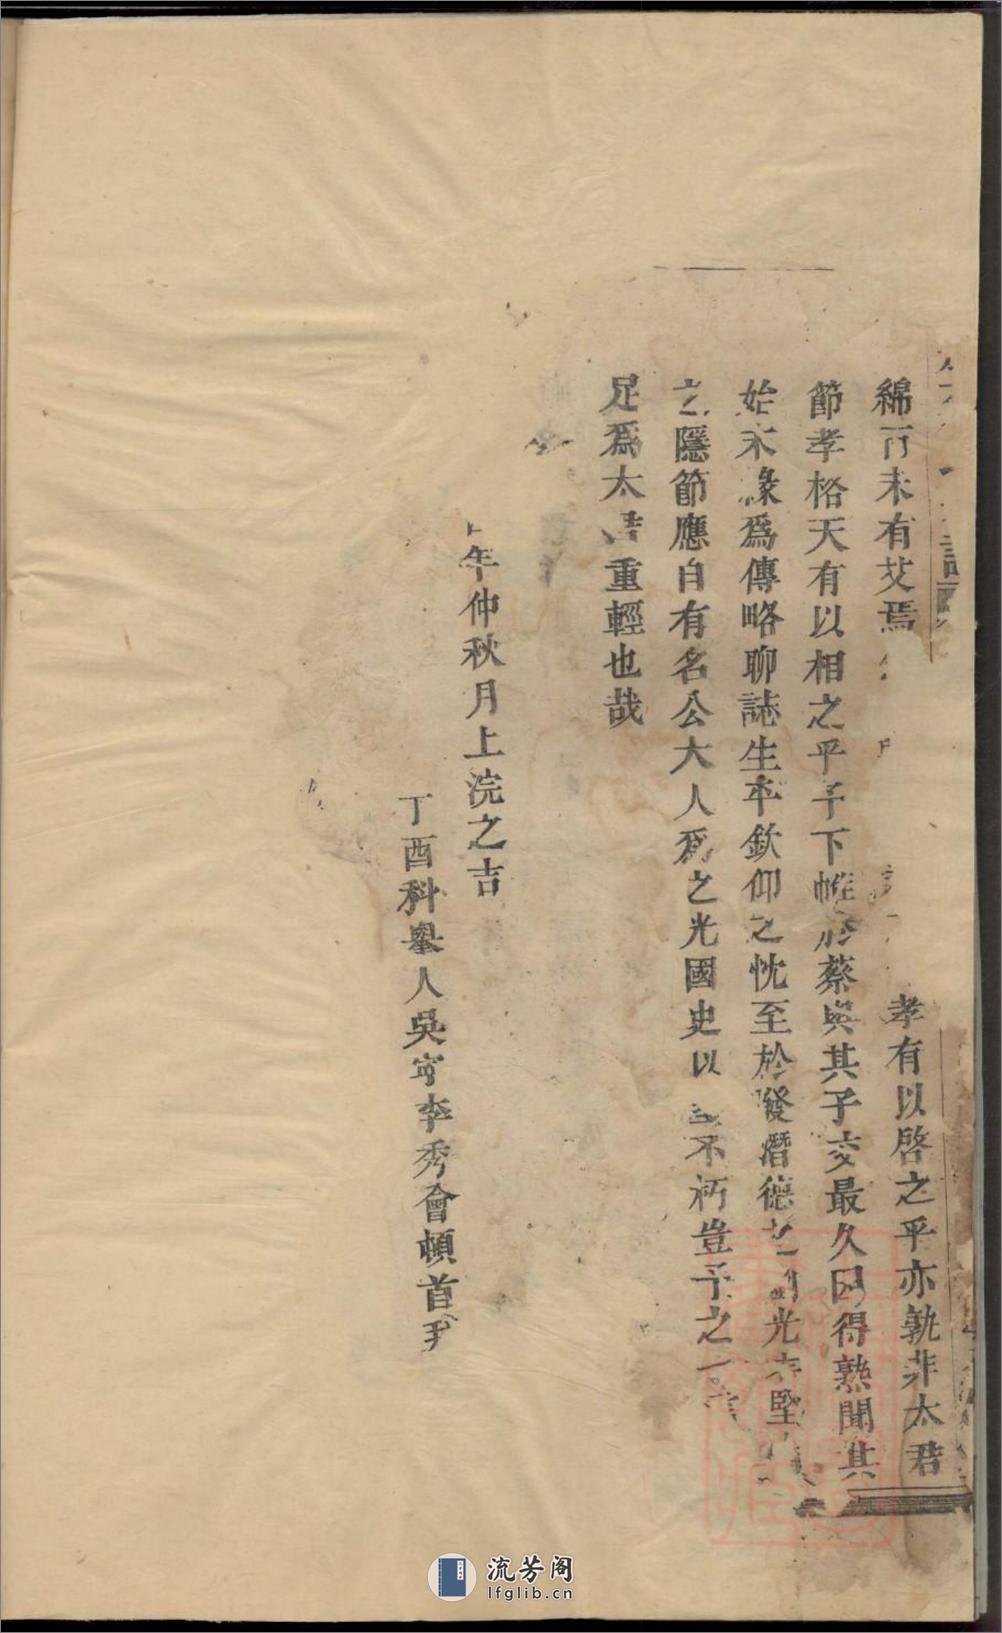 綿 未有艾焉 孝有以啓之乎亦孰非太君
節孝格天有以相之乎予下帷於蔡與其子交最久因得熟聞其
始末緣爲傳略聊誌生平欽仰之忱至於發潛德 光 堅
之隱節應自有名公大人爲之光國史以 不朽豈予之一言
足爲太君重輕也哉
年仲秋月上浣之吉
丁酉科舉人吳寧李秀會頓首拜
流芳阁
lfglib.cn